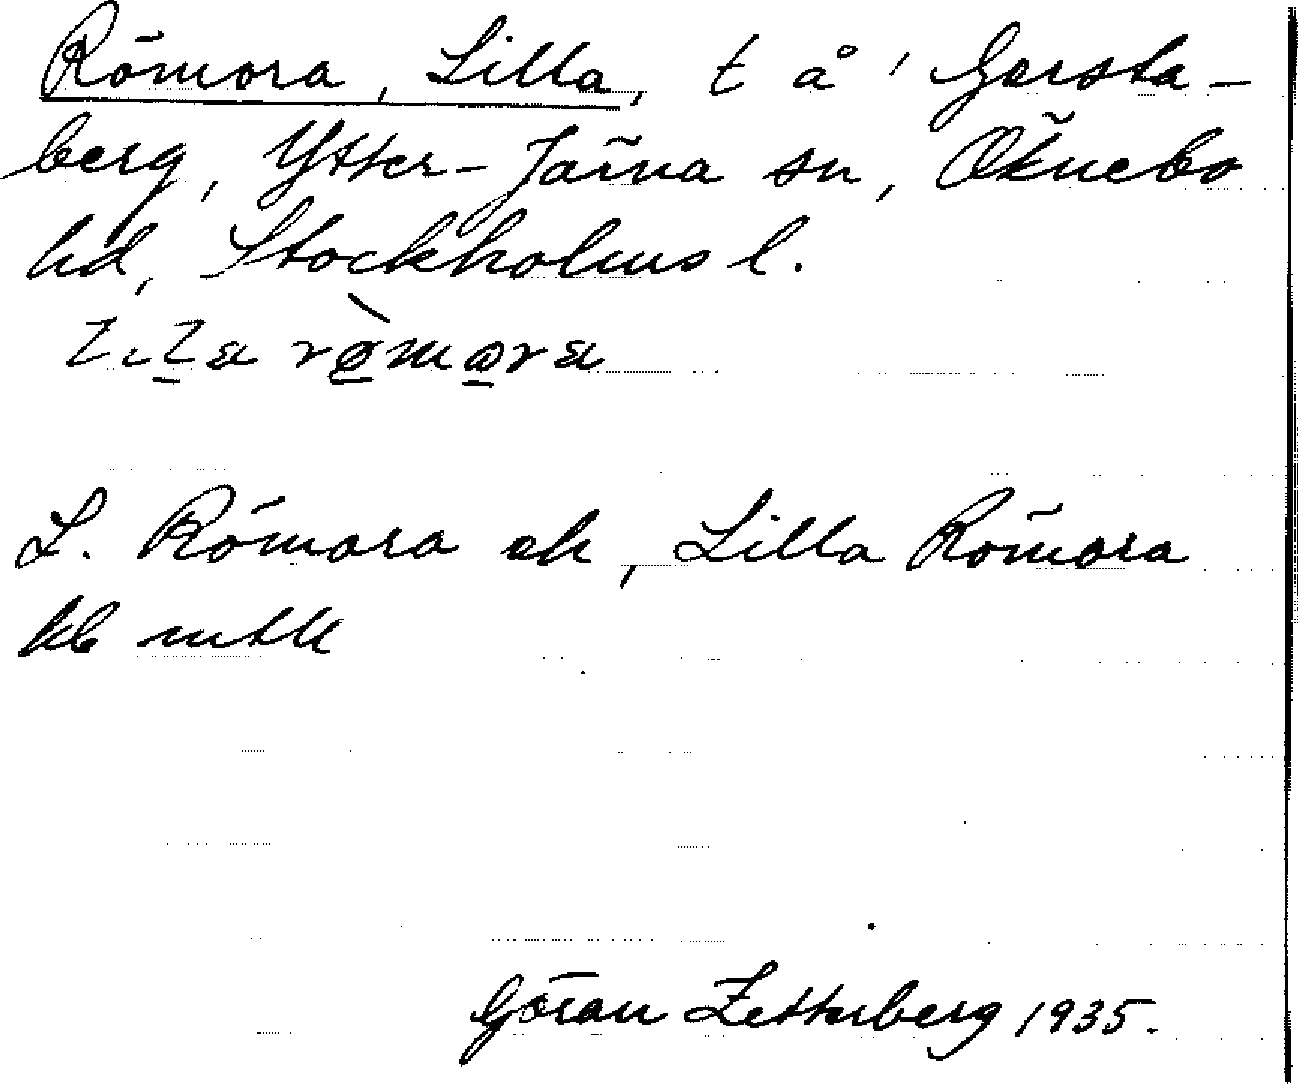 Römora, Lilla, t å Gersta-
berg, Ytter-Järna sn, Öknebo
hd, Stockholms l.
L. Römora ek, Lilla Römora
kb mtlk
Göran Zetterberg 1935.